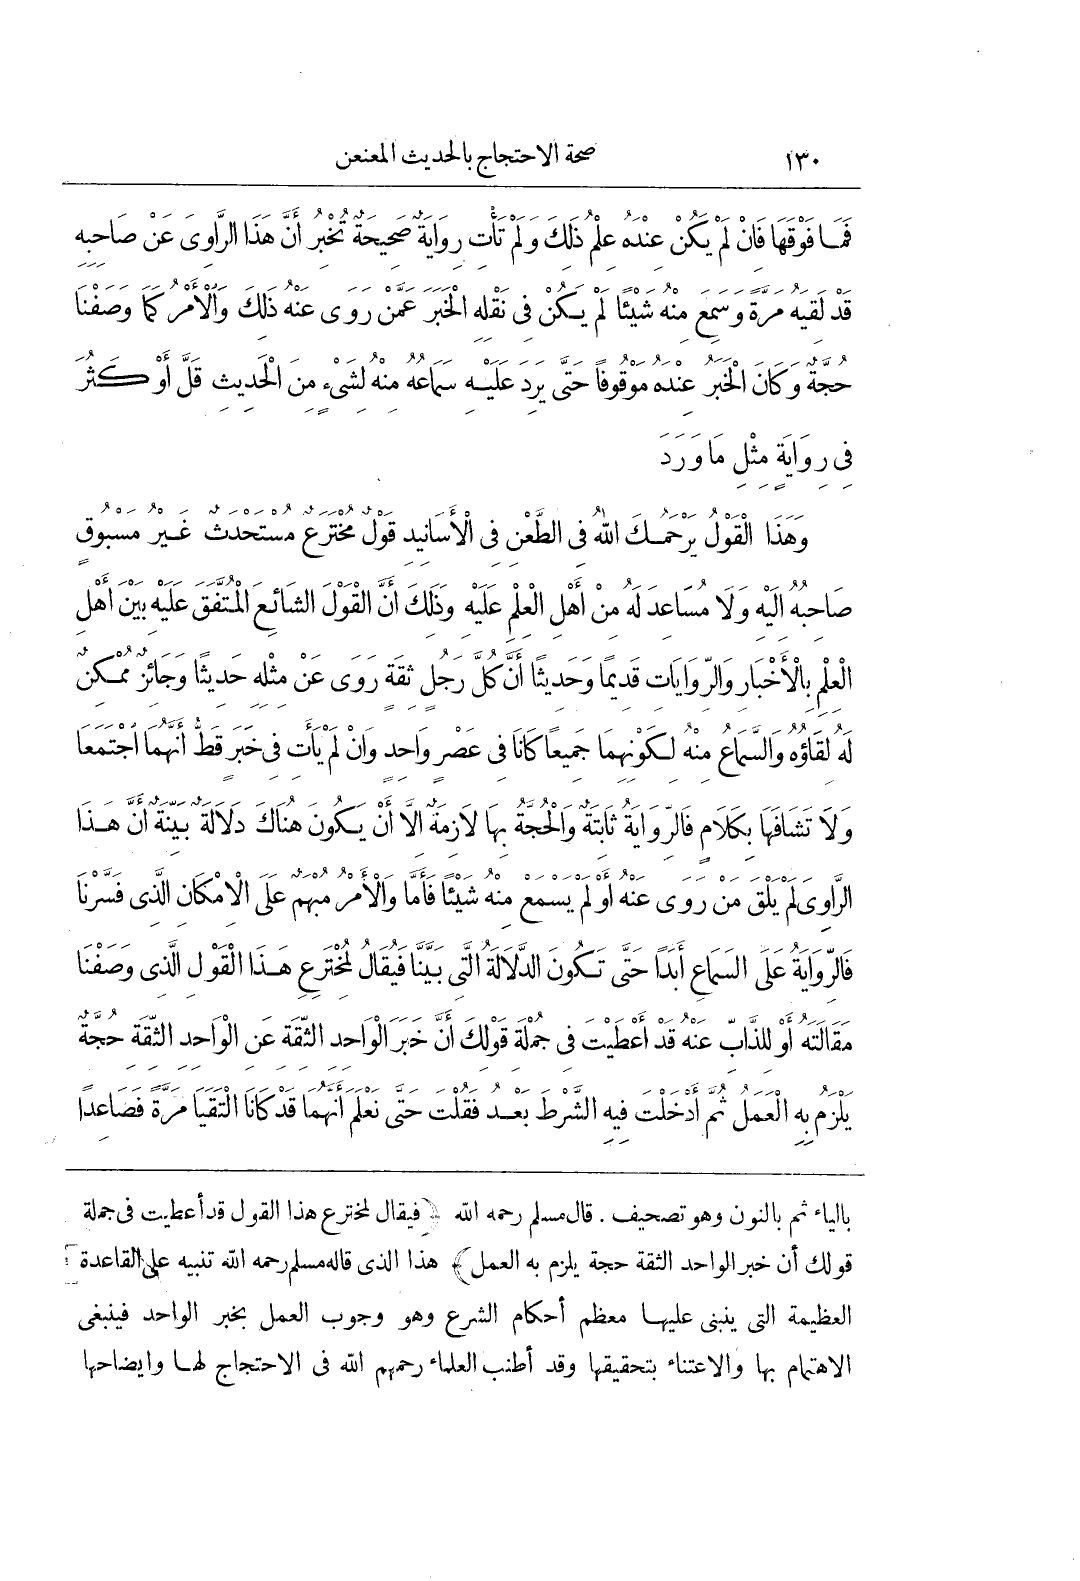 ١٣٠ صحة الاحتجاج بالحديث المعنعن
فَمَا فَوْقَهَا فَانْ لَمْ يَكُنْ عِنْدَهُ عِلْمُ ذٰلِكَ وَلَمْ تَأْتِ رِوَايَةٌ صَحِيحَةٌ تُخْبِرُ أَنَّ هَذَا الرَّاوِىَ عَنْ صَاحِبِهِ
قَدْ لَقِيَهُ مَرَّةً وَسَمِعَ مِنْهُ شَيْئًا لَمْ يَكُنْ فِى نَقْلِهِ الْخَبَرَ عَمَّنْ رَوَى عَنْهُ ذَلِكَ وَالْأَمْرُ كَمَا وَصَفْنَا
حُجَّةٌ وَكَانَ الْخَبَرُ عِنْدَهُ مَوْقُوفًا حَتَّى يَرِدَ عَلَيْهِ سَمَاعُهُ مِنْهُ لِشَىْءٍ مِنَ الْحَدِيثِ قَلَّ أَوْ كَثُرَ
فِى رِوَايَةٍ مِثْلِ مَا وَرَدَ
وَهَذَا الْقَوْلُ يَرْحَمُكَ اللّٰهُ فِى الطَّعْنِ فِى الْأَسَانِيدِ قَوْلٌ مُخْتَرَعٌ مُسْتَحْدَثٌ غَيْرُ مَسْبُوقٍ
صَاحِبُهُ الَيْهِ وَلَا مُسَاعِدَ لَهُ مِنْ أَهْلِ الْعِلْمِ عَلَيْهِ وَذَلِكَ أَنَّ الْقَوْلَ الشَّائِعَ الْمُتَّفَقَ عَلَيْهِ بَيْنَ أَهْلِ
الْعِلْمِ بِالْأَخْبَارِ وَالرِّوَايَاتِ قَدِيمًا وَحَدِيثًا أَنَّ كُلَّ رَجُلٍ ثِقَةٍ رَوَى عَنْ مِثْلِهِ حَدِيثًا وَجَائِزٌ مُمْكِنٌ
لَهُ لِقَاؤُهُ وَالسَّمَاعُ مِنْهُ لِكَوْنِهِمَا جَمِيعًا كَانَا فِى عَصْرٍ وَاحِدٍ وَانْ لَمْ يَأْتِ فِى خَبَرٍ قَطُّ أَنَّهُمَا اجْتَمَعَا
وَلَا تَشَافَهَا بِكَلَامٍ فَالرِّوَايَةُ ثَابِتَةٌ وَالْحُجَّةُ بِهَا لَازِمَةٌ الَّا أَنْ يَكُونَ هُنَاكَ دِلَالَةٌ بَيِّنَةٌ أَنَّ هَذَا
الرَّاوِىَ لَمْ يَلْقَ مَنْ رَوَى عَنْهُ أَوْ لَمْ يَسْمَعْ مِنْهُ شَيْئًا فَأَمَّا وَالْأَمْرُ مُبْهَمٌ عَلَى الْامْكَانِ الَّذِى فَسَّرْنَا
فَالرِّوَايَةُ عَلَى السَمَاعِ أَبَدًا حَتَّى تَكُونَ الدَّلَالَةُ الَّتِى بَيَّنَّا فَيُقَالُ لِمُخْتَرِعِ هَذَا الْقَوْلِ الَّذِى وَصَفْنَا
مَقَالَتَهُ أَوْ لِلذَّابِّ عَنْهُ قَدْ أَعْطَيْتَ فِى جُمْلَةِ قَوْلِكَ أَنَّ خَبَرَ الْوَاحِدِ الثِّقَةِ عَنِ الْوَاحِدِ الثِّقَةِ حُجَّةٌ
يَلْزَمُ بِهِ الْعَمَلُ ثُمَّ أَدْخَلْتَ فِيهِ الشَّرْطَ بَعْدُ فَقُلْتَ حَتَّى نَعْلَمَ أَنَّهُمَا قَدْ كَانَا الْتَقَيَا مَرَّةً فَصَاعِدًا
بالياء ثم بالنون وهو تصحيف . قال مسلم رحمه الله ﴿فيقال لمخترع هذا القول قد أعطيت فى جملة
قولك أن خبر الواحد الثقة حجة يلزم به العمل﴾ هذا الذى قاله مسلم رحمه الله تنبيه على القاعدة
العظيمة التى ينبنى عليها معظم أحكام الشرع وهو وجوب العمل بخبر الواحد فينبغى
الاهتمام بها والاعتناء بتحقيقها وقد أطنب العلماء رحمهم الله فى الاحتجاج لها وايضاحها